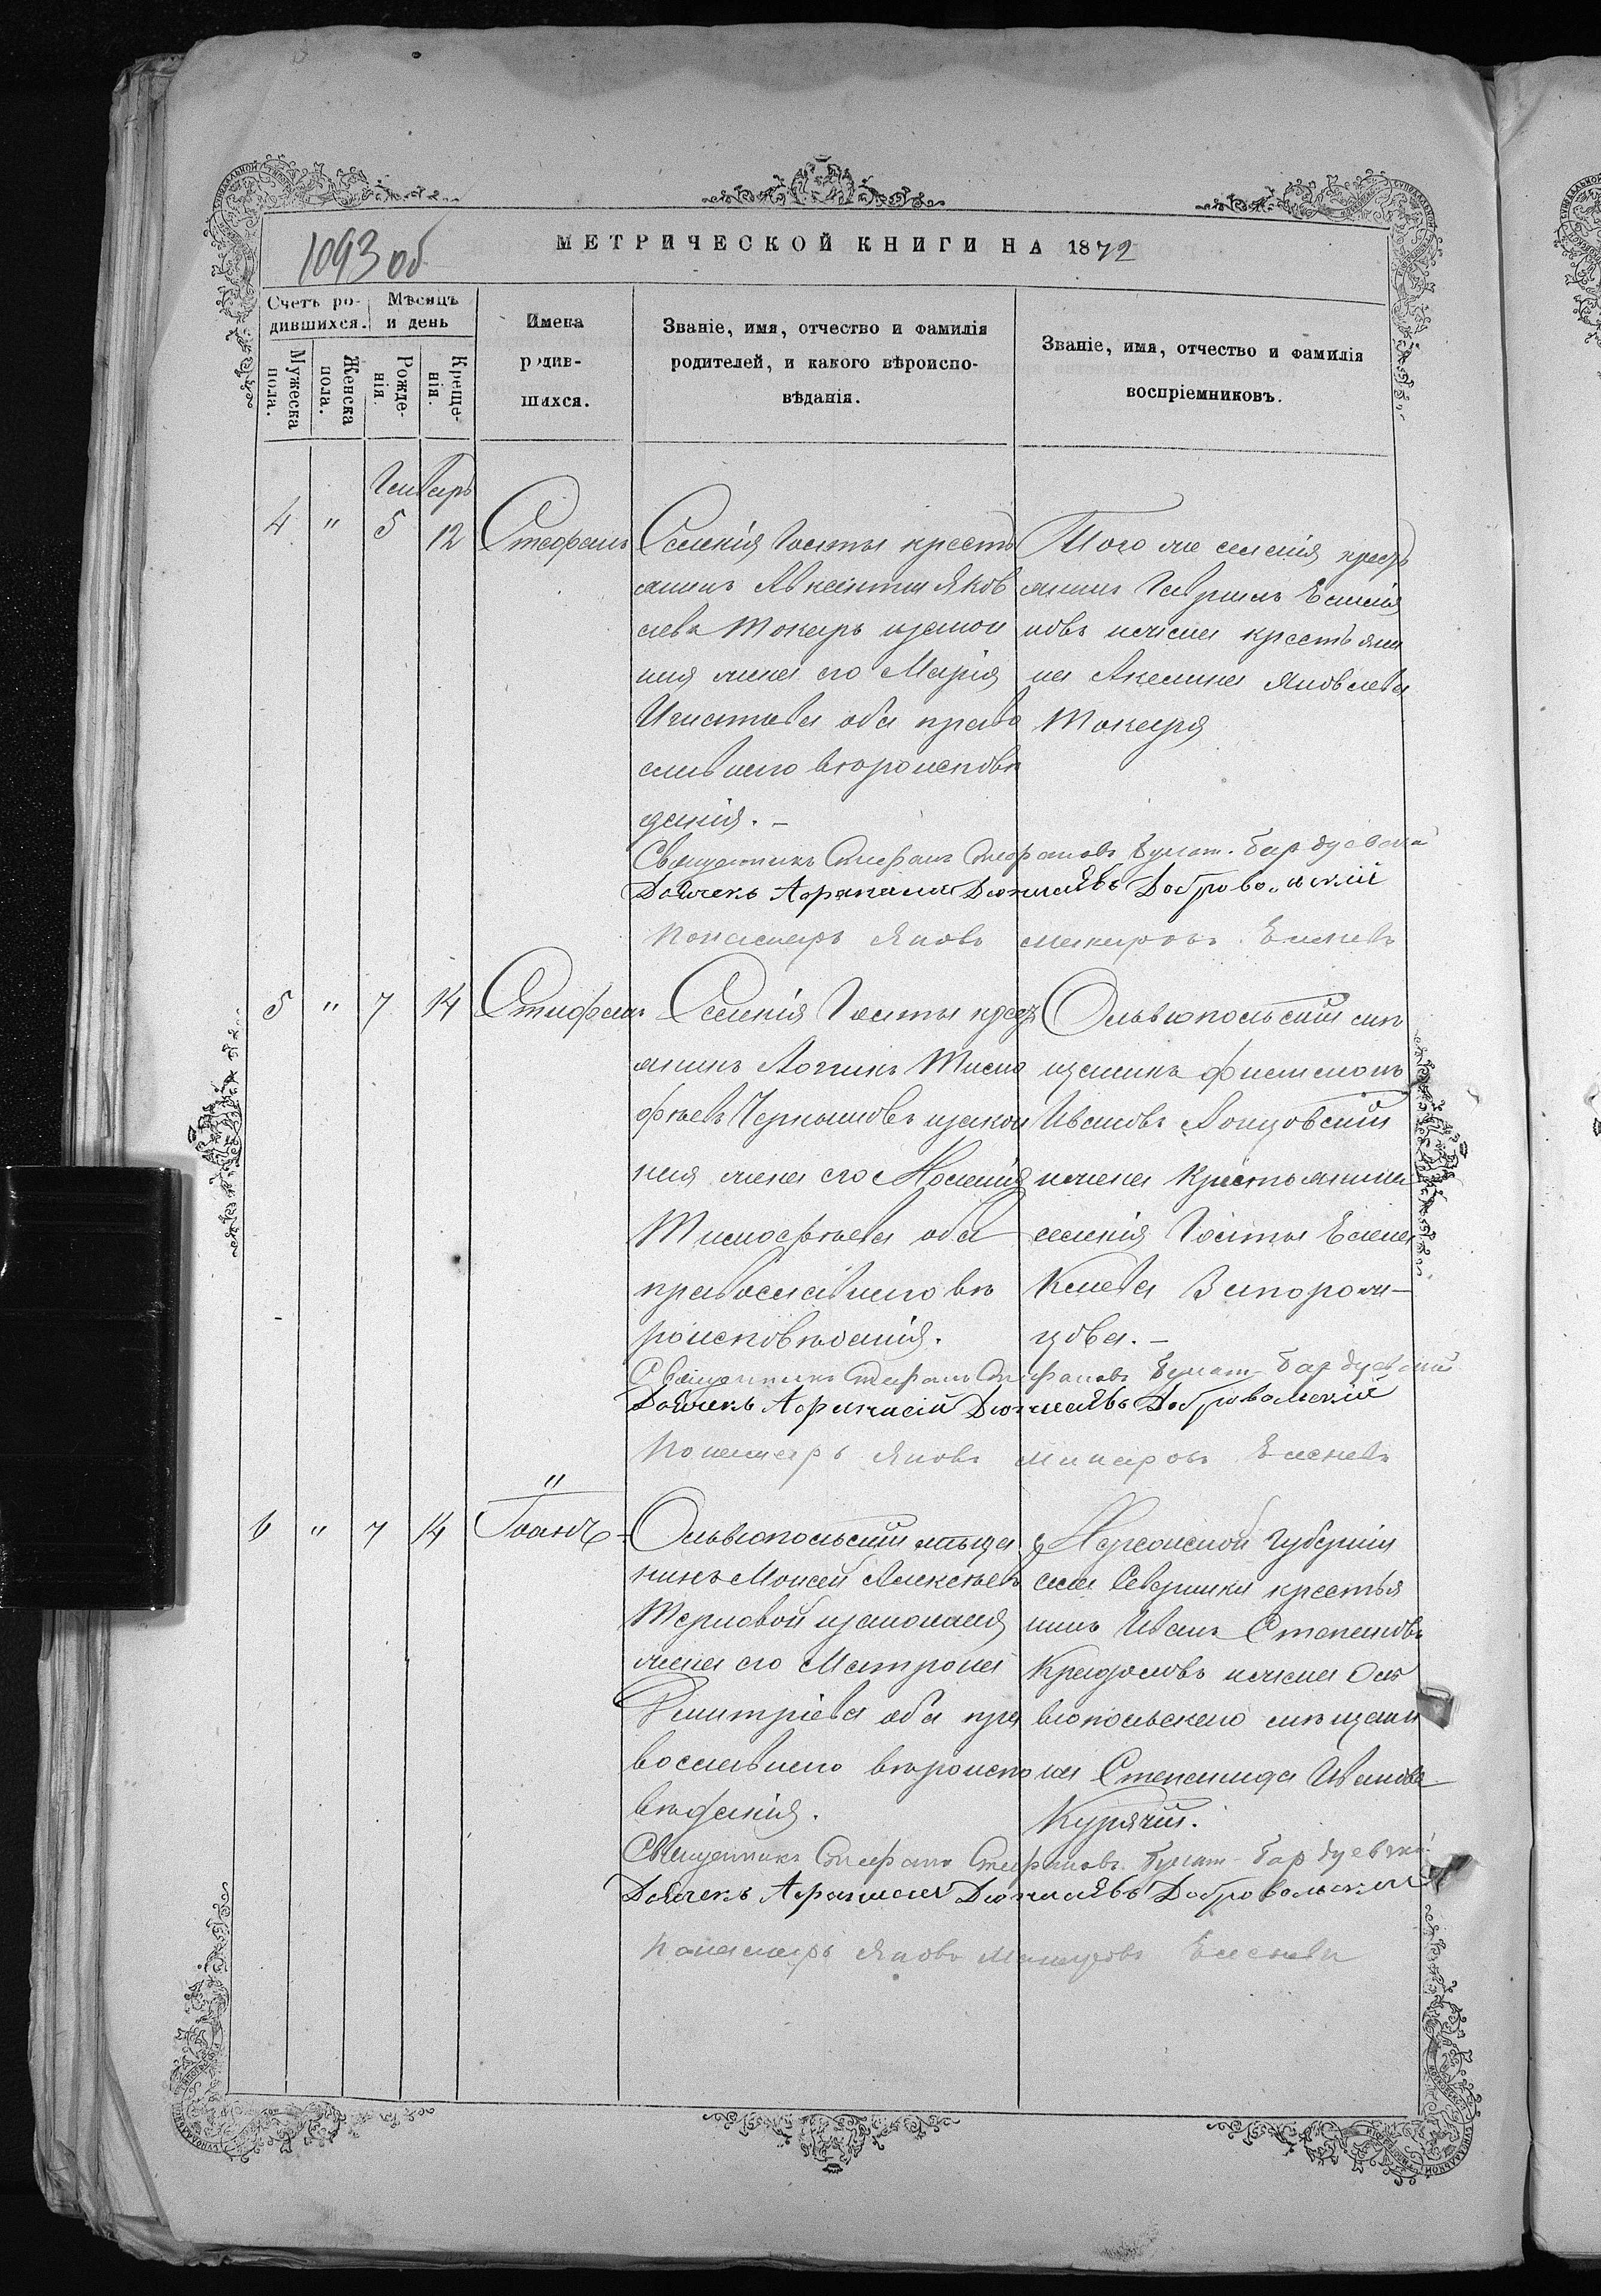 1093 об
МЕТРИЧЕСКОЙ КНИГИ НА 1872
Счетъ ро-
дившихся.
Мѣсяцъ
и день
Мужеска
пола.
Женска
пола.
Рожде-
нія.
Креще-
нія.
Имена
родив-
шихся.
Званіе, имя, отчество и фамилія
родителей, и какого вѣроиспо-
вѣданія.
Званіе, имя, отчество и фамилія
воспріемниковъ.
Январь
4 " 5 12 Стефанъ
Селенія кресть
янинъ Авксентій Яков
левъ Токарь и закон
ная жена его Марія
Игнатьева оба право
славнаго вѣроисповѣ
данія. –
Того же селенія кресть
янинъ Гавріилъ
и жена крестьяни
на Акелина Яковлева
Токаря
Священникъ Стефанъ Стефановъ
Дьячекъ Афанасій Добровольскій
Пономарь Яковъ Макаровъ
5 " 7 14 Стефанъ
Селенія крест
янинъ Логинъ Тимо
фѣевъ Чернышовъ и закон
ная жена его Ксенія
Тимофѣева оба
православнаго вѣ
роисповѣданія.
Ольвіопольскій мѣ
щанинъ Филимонъ
Ивановъ
и жена крестьянина
селенія Елена
Запорож–
цова. –
Священникъ Стефанъ Стефановъ
Дьячекъ Афанасій Добровольскій
Пономарь Яковъ Макаровъ
6 " 7 14 "
Іоаннъ
Ольвіопольскій мѣща
нинъ Моисей Алексѣевъ
Терновой и законная
жена его Матрона
Дмитріева оба пра
вославнаго вѣроиспо
вѣданія.
Херсонской губерніи
села Севринки крестья
нинъ Иванъ Степановъ
и жена Оль
віопольскаго мѣщани
на Степанида Иванова
Священникъ Стефанъ Стефановъ
Дьячекъ Афанасій Добровольскій
Пономарь Яковъ Макаровъ